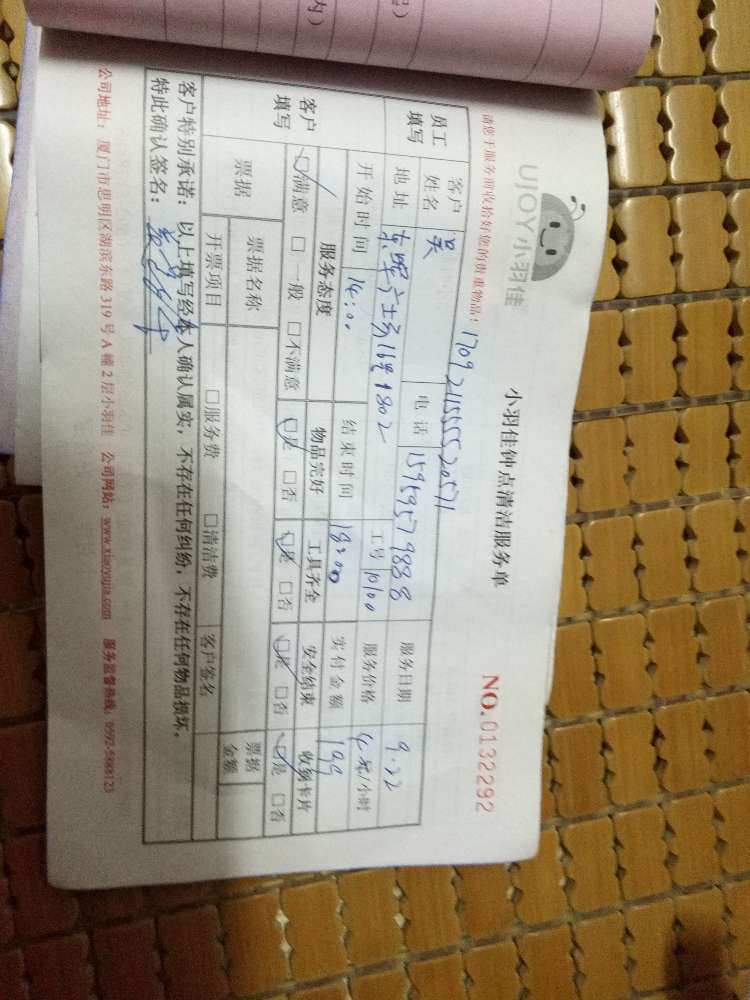 内）
UJOY小羽佳
小羽佳钟点清洁服务单
NO.0132292
请您于服务前收拾好您的贵重物品：
员工填写 客户姓名 吴 电话 15959579888 服务日期 9.22
地址 工号 10100 服务价格 /小时
开始时间 14:00 结束时间 18:00 实付金额 199
客户填写 服务态度 物品完好 工具齐全 安全结束 收到卡片
☑满意 □一般 □不满意 ☑是 □否 ☑是 □否 ☑是 □否 ☑是 □否
票据 票据名称 票据金额
开票项目 □服务费 □清洁费 客户签名
客户特别承诺：以上填写经本人确认属实，不存在任何纠纷，不存在任何物品损坏。
特此确认签名：
公司地址：厦门市思明区湖滨东路319号A幢2层小羽佳 公司网站：www.xiaoyujia.com 服务监督热线：0592-5908123